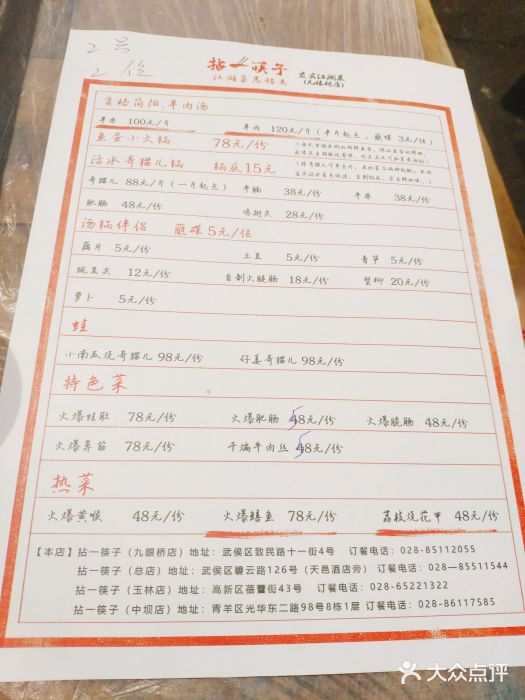 2号
2位
拈一筷子
江湖菜马锦美
贡宾江湖菜
(九眼桥店)
资格简阳、羊肉汤
羊杂 100元/斤 羊肉 120元/斤 (半斤起点,蘸碟 3元/位)
鱼蛋小火锅 78元/份
活水奇猫儿锅 锅底15元
奇猫儿 88元/斤 (一斤起点) 羊肠 38元/份 羊杂 38元/份
肥肠 48元/份 鸡翅尖 28元/份
汤锅伴侣 蘸碟5元/位
藕片 5元/份 土豆 5元/份 青笋 5元/份
豌豆尖 12元/份 自制火腿肠 18元/份 蟹柳 20元/份
萝卜 5元/份
蛙
小南瓜烧奇猫儿 98元/份 仔姜奇猫儿 98元/份
特色菜
火爆蛙肚 78元/份 火爆肥肠 58元/份 火爆脆肠 48元/份
火爆鼻筋 78元/份 干煸牛肉丝 58元/份
热菜
火爆黄喉 48元/份 火爆鳝鱼 78元/份 荔枝烧花甲 48元/份
【本店】拈一筷子(九眼桥店)地址:武侯区致民路十一街4号 订餐电话:028-85112055
拈一筷子(总店)地址:武侯区碧云路126号(天邑酒店旁)订餐电话:028—85511544
拈一筷子(玉林店)地址:高新区蓓蕾街43号 订餐电话:028-65221322
拈一筷子(中坝店)地址:青羊区光华东二路98号8栋1层 订餐电话:028-86117585
大众点评